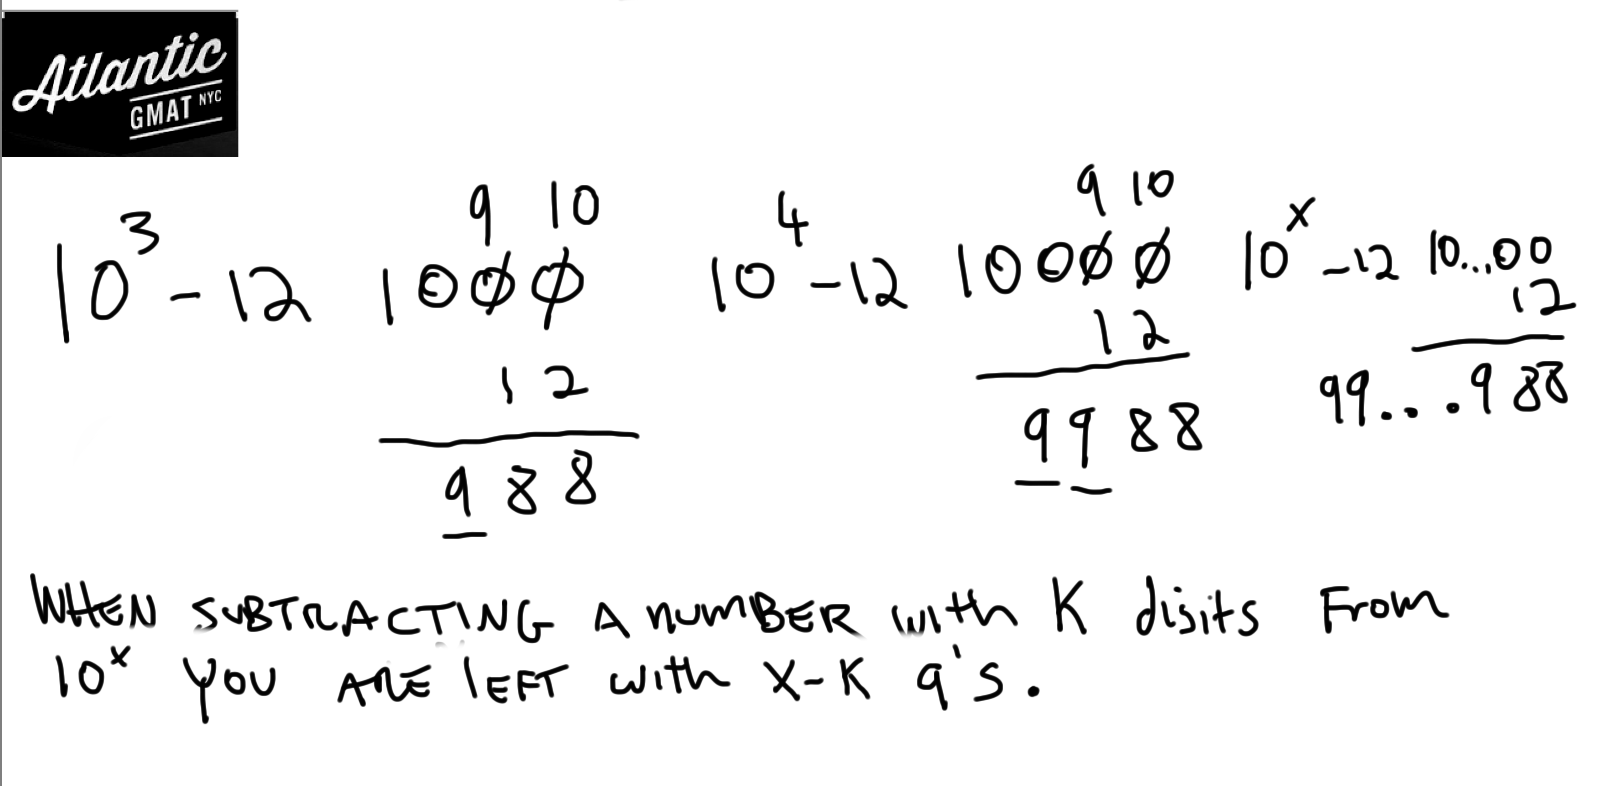 Atlantic
GMAT NYC
9 10
10³-12 1000
12
988
9 10
10⁴-12 10000
12
9988
10ˣ-12 10...00
12
99...988
WHEN SUBTRACTING A NUMBER WITH K disits From
10ˣ YOU ARE LEFT WITH X-K 9's.